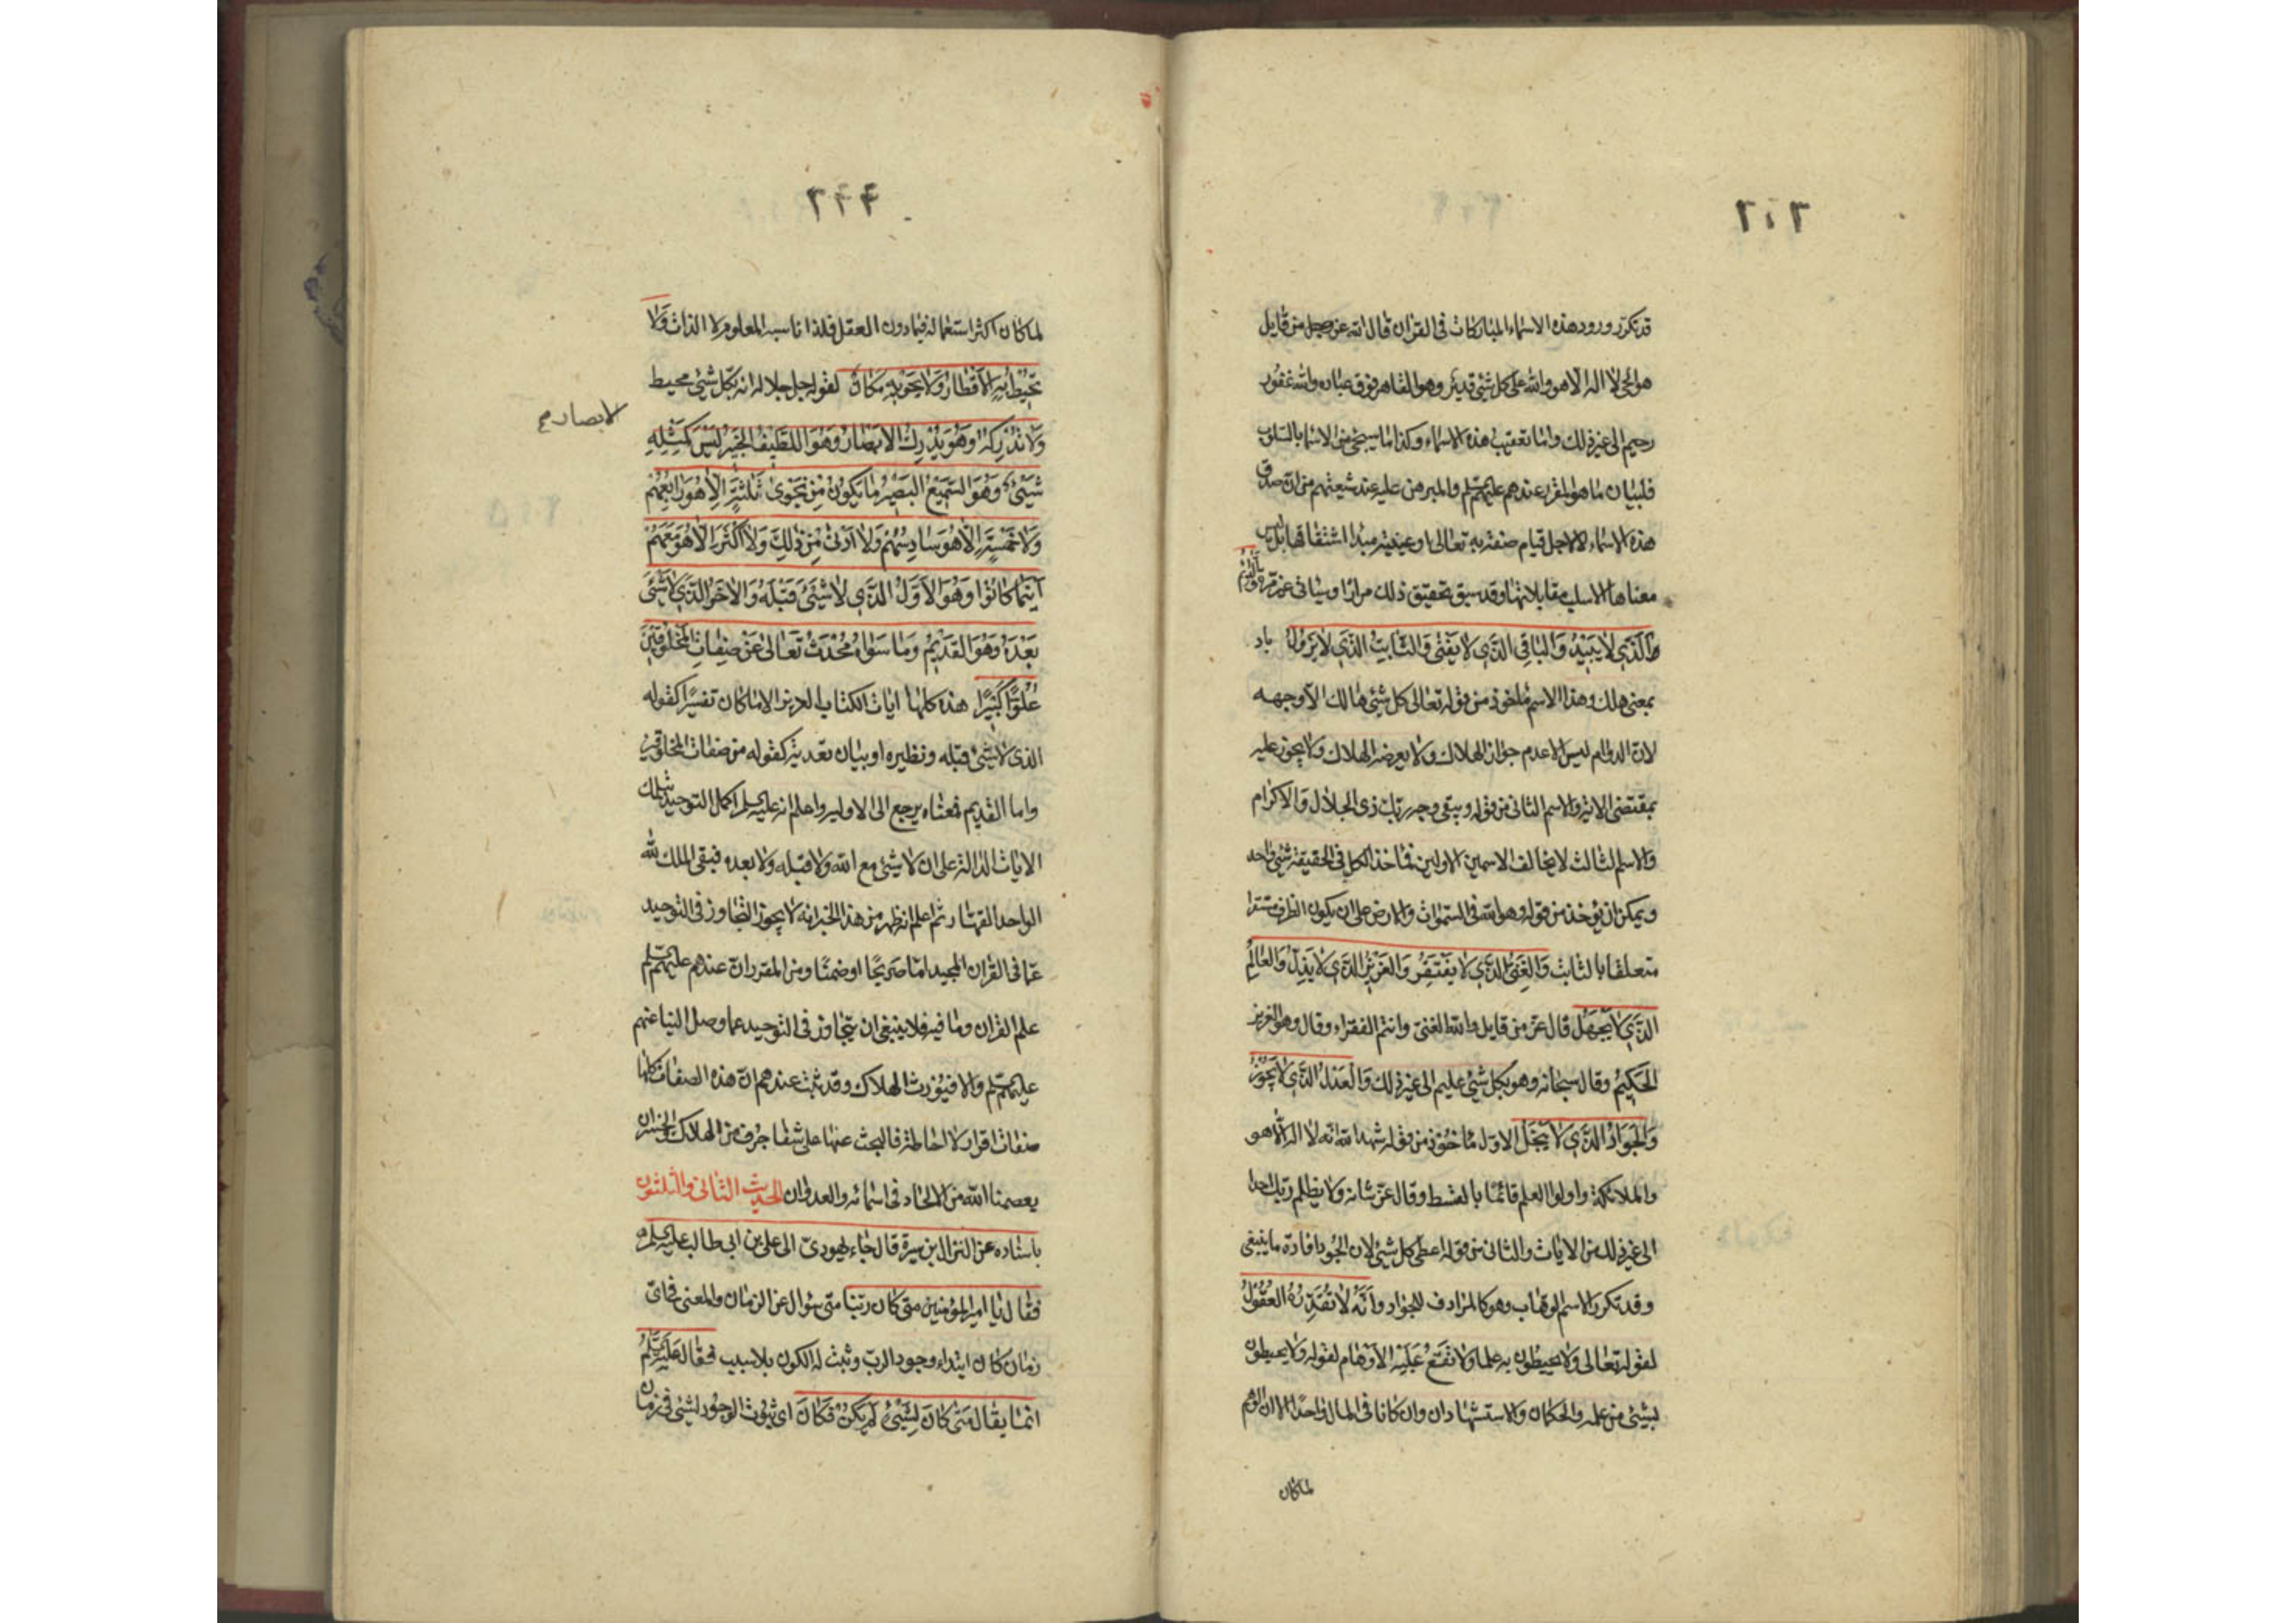 ٢٠٢
قد تكرّر ورود هذه الاسماء المباركات فى القران قال الله عز وجل من قايل
هو الحى لا اله الا هو والله على كل شئ قدير وهو القاهر فوق عباده والله غفور
رحيم الى غير ذلك وانما تعقيب هذه الاسماء وكذا ما سيجئ من الاسما بالسلوب
فلبيان ما هو المقرر عندهم عليهم السلم والمبرهن عليه عند شيعتهم من ان صدق
هذه الاسماء لا لاجل قيام صفة به تعالى او عينية مبدا اشتقاقها بل ليس
معناها الا سلب مقابلاتها وقد سبق تحقيق ذلك مرارا وسياتى غير مرة والدائم
الذى لا يبيد والباقى الذى لا يفنى والثابت الذى لا يزول باد
بمعنى هلك وهذا الاسم ماخوذ من قوله تعالى كل شئ هالك الا وجهه
لان الدوام ليس الا عدم جواز الهلاك ولا يعرضه الهلاك ولا يجوز عليه
بمقتضى الاية والاسم الثانى من قوله ويبقى وجه ربك ذى الجلال والاكرام
والاسم الثالث لا يخالف الاسمين الاولين فماخذ الكل فى الحقيقة شئ واحد
ويمكن ان يؤخذ من قوله وهو الله فى السموات والارض على ان يكون الظرف مستقرا
متعلقا بالثابت والغنى الذى لا يفتقر والعزيز الذى لا يذل والعالم
الذى لا يجهل قال عز من قايل والله الغنى وانتم الفقراء وقال وهو العزيز
الحكيم وقال سبحانه وهو بكل شئ عليم الى غير ذلك والعدل الذى لا يجوز
والجواد الذى لا يبخل الاول ماخوذ من قوله شهد الله انه لا اله الا هو
والملائكة واولوا العلم قائما بالقسط وقال عز شانه ولا يظلم ربك احدا
الى غير ذلك من الايات والثانى من قوله اعطى كل شئ لان الجود افادة ما ينبغى
وقد تكرر الاسم الوهاب وهو كالمرادف للجواد وانه لا تقدره العقول
لقوله تعالى ولا يحيطون به علما ولا تقع عليه الاوهام لقوله ولا يحيطون
بشئ من علمه والحكمان والاستشهادان وان كانا فى المال واحدا الا ان الوهم
لما كان
لما كان اكثر استعماله فيما دون العقل فلذا ناسبه المعلوم لا الذات ولا
تحيط به الاقطار ولا يحويه مكان لقوله جل جلاله انه بكل شئ محيط
الابصار
ولا تدركه وهو يدرك الابصار وهو اللطيف الخبير ليس كمثله
شئ وهو السميع البصير ما يكون من نجوى ثلثة الا هو رابعهم
ولا خمسة الا هو سادسهم ولا ادنى من ذلك ولا اكثر الا هو معهم
اينما كانوا وهو الاول الذى لا شئ قبله والاخر الذى لا شئ
بعده وهو القديم وما سواه محدث تعالى عن صفات المخلوقين
علوا كبيرا هذه كلها ايات الكتاب العزيز الا ما كان تفسيرا كقوله
الذى لا شئ قبله ونظيره او بيان تعدية كقوله من صفات المخلوقين
واما القديم فمعناه يرجع الى الاولية واعلم انه عليه السلم اكمل التوحيد بتلك
الايات الدالة على ان لا شئ مع الله ولا قبله ولا بعده فبقى الملك لله
الواحد القهار ثم اعلم انه ظهر من هذا الخبر انه لا يجوز التجاوز فى التوحيد
عما فى القران المجيد اما صريحا او ضمنا ومن المقرر ان عندهم عليهم السلم
علم القران وما فيه فلا ينبغى ان يتجاوز فى التوحيد عما وصل الينا عنهم
عليهم السلم والا فيورث الهلاك وقد ثبت عندهم ان هذه الصفات كلها
صفات اقرار لا احاطة فالبحث عنها على شفا جرف من الهلاك والخسران
يعصمنا الله من الالحاد فى اسمائه والعدوان الحديث الثانى والثلثون
باسناده عن النزال بن سبرة قال جاء يهودى الى على بن ابى طالب عليه السلم
فقال يا امير المؤمنين متى كان ربنا متى سؤال عن الزمان والمعنى فى اى
زمان كان ابتداء وجود الرب وثبت له الكون بلا سبب فقال عليه السلم
انما يقال متى كان لشئ لم يكن فكان اى ثبوت الوجود لشئ فى زمان